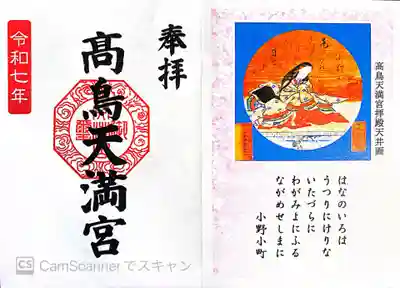 奉拝
髙鳥天満宮
令和七年
CS CamScannerでスキャン
高鳥天満宮拝殿天井画
はなのいろは
うつりにけりな
いたづらに
わがみよにふる
ながめせしまに
小野小町